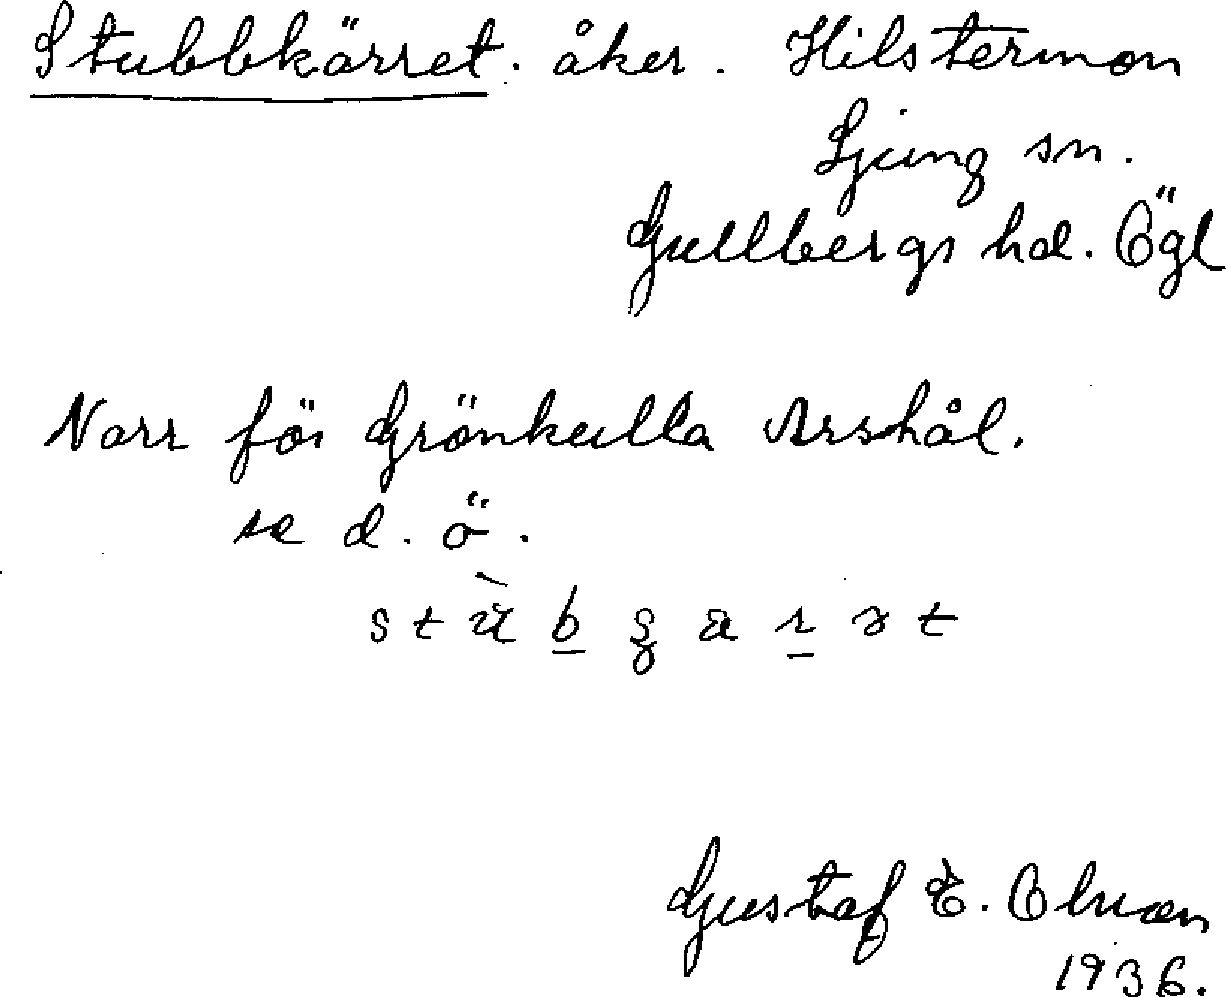 Stubbkärret. åker. Hilstermon
Ljung sn.
Gullbergs hd. Ögl
Norr för Grönkulla Arshål.
se d. ö.
Gustaf E. Olson
1936.